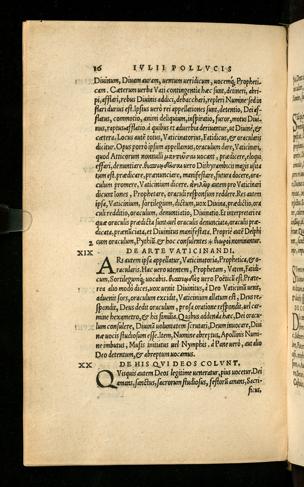 16 IVLII POLLVCIS
Diuinum, Diuam auram, uentum ueridicum, uocemq; Propheti-
cam. Cæterum uerba Vati contingentia hæc sunt, detineri, abri-
pi, afflari, rebus Diuinis addici, debacchari, repleri Numine sed in
flari durius est. Ipsius uerò rei appellationes sunt, detentio, Dei af-
flatus, commotio, animi deliquium, inspiratio, furor, motus Diui-
nus, raptus afflatio à quibus et aduerbia deriuantur, ut Diuinè, &
cætera. Locus autē totus, Vaticinatorius, Fatidicus, & oracularis
dicitur. Opus porrò ipsum appellamus, oraculum dare, Vaticinari,
quod Atticorum nonnulli uocant, prædicere, eloqui
effari, denuntiare. uerò Dithyrambicis magis usita
tum est, prædicare, prænunciare, manifestare, futura docere, ora-
culum promere, Vaticinium dicere. autem pro Vaticinari
dicunt Iones, Prophetare, oraculi responsum reddere. Res autem
ipsa, Vaticinium, sortilegium, dictum, uox Diuina, prædictio, ora
culi redditio, oraculum, denuntiatio, Diuinatio. Et interpretatæ
quæ oraculis prædicta sunt aut oraculo denuntiata, oraculis præ-
dicata, prænuntiata, et Diuinitus manifestata. Propriè autē Delphi
cum oraculum, Pythiū & hoc consulentes nominantur.
2
XIX DE ARTE VATICINANDI.
ARs autem ipsa appellatur, Vaticinatoria, Prophetica, & o-
racularis. Hac uero utentem, Prophetam, Vatem, Fatidi-
cum, Sortilegumq; uocabis. uerò Poëticū est. Præte-
rea alio modo dices, uox uenit Diuinitus, à Deo Vaticiniū uenit,
aduenit sors, oraculum excidit, Vaticinium allatum est, Deus re-
spondit, Deus dedit oraculum, prosa oratione respondit, uel car-
mine hexametro, & his similia. Quibus addenda hæc, Dei oracu-
lum consulere, Diuinā uoluntatem scrutari, Deum inuocare, Diui
næ uocis studiosum esse. Item, Numine abreptus, Apollinis Numi
ne imbutus, Musis initiatus uel Nymphis, à Pane uerò, aut alio
Deo detentum, & abreptum uocamus.
XX DE HIS QVI DEOS COLVNT.
QVisquis autem Deos legitime ueneratur, pius uocetur. Dei
amans, sanctus, sacrorum studiosus, festorū amans, Sacri-
ficus,